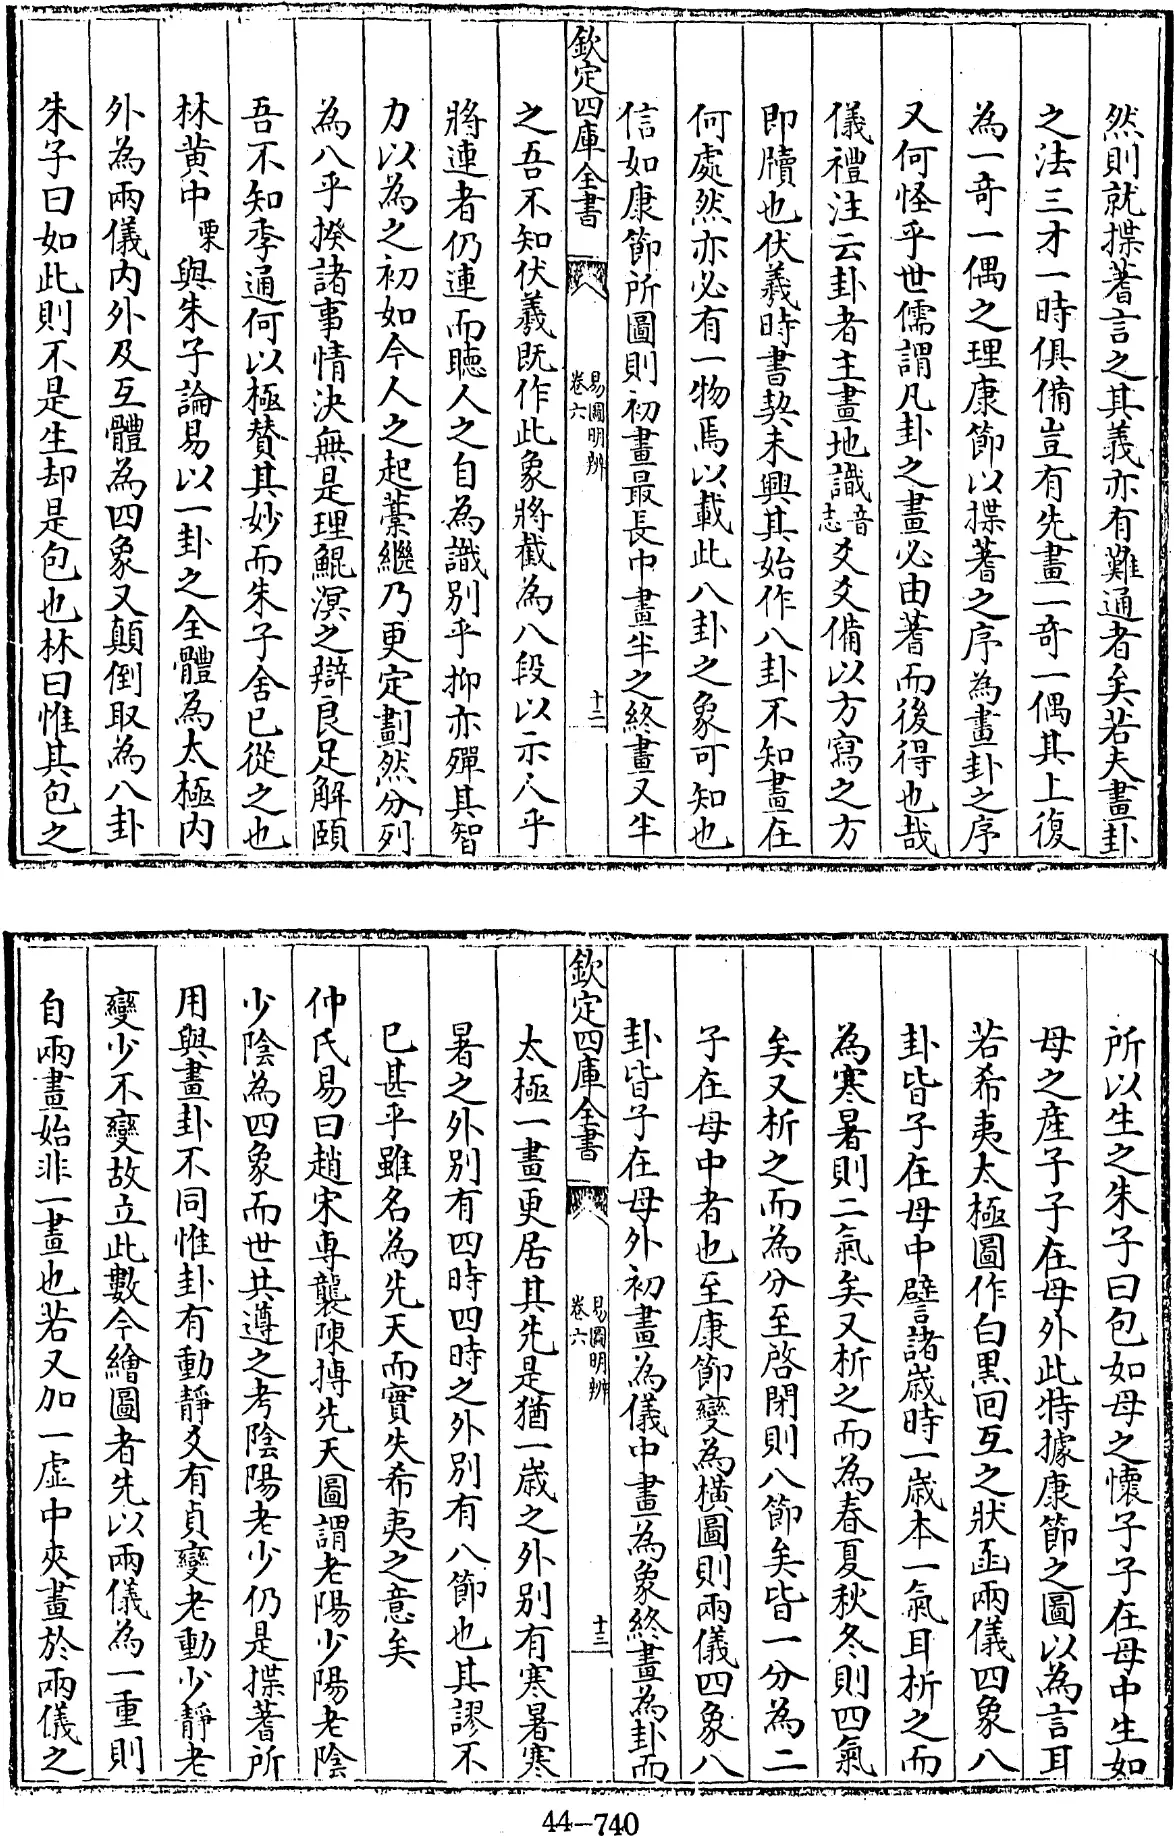 然則就揲蓍言之其義亦有難通者矣若夫畫卦
之法三才一時俱備豈有先畫一奇一偶其上復
為一奇一偶之理康節以揲蓍之序為畫卦之序
又何怪乎世儒謂凡卦之畫必由蓍而後得也哉
儀禮注云卦者主畫地識音志爻爻備以方寫之方
即牘也伏羲時書契未興其始作八卦不知畫在
何處然亦必有一物焉以載此八卦之象可知也
信如康節所圖則初畫最長中畫半之終畫又半
欽定四庫全書
易圖明辨
卷六
十二
之吾不知伏羲既作此象將截為八段以示人乎
將連者仍連而聽人之自為識別乎抑亦殫其智
力以為之初如今人之起藁繼乃更定劃然分列
為八乎揆諸事情決無是理鯤溟之辯良足解頤
吾不知季通何以極贊其妙而朱子舍已從之也
林黄中栗與朱子論易以一卦之全體為太極内
外為兩儀内外及互體為四象又顛倒取為八卦
朱子曰如此則不是生却是包也林曰惟其包之
所以生之朱子曰包如母之懷子子在母中生如
母之産子子在母外此特據康節之圖以為言耳
若希夷太極圖作白黑回互之狀函兩儀四象八
卦皆子在母中譬諸歳時一歳本一氣耳析之而
為寒暑則二氣矣又析之而為春夏秋冬則四氣
矣又析之而為分至啓閉則八節矣皆一分為二
子在母中者也至康節變為横圖則兩儀四象八
卦皆子在母外初畫為儀中畫為象終畫為卦而
欽定四庫全書
易圖明辨
卷六
十三
太極一畫更居其先是猶一歳之外别有寒暑寒
暑之外别有四時四時之外别有八節也其謬不
已甚乎雖名為先天而實失希夷之意矣
仲氏易曰趙宋専襲陳摶先天圖謂老陽少陽老陰
少陰為四象而世共遵之考陰陽老少仍是揲蓍所
用與畫卦不同惟卦有動靜爻有貞變老動少靜老
變少不變故立此數今繪圖者先以兩儀為一重則
自兩畫始非一畫也若又加一虚中夾畫於兩儀之
44-740